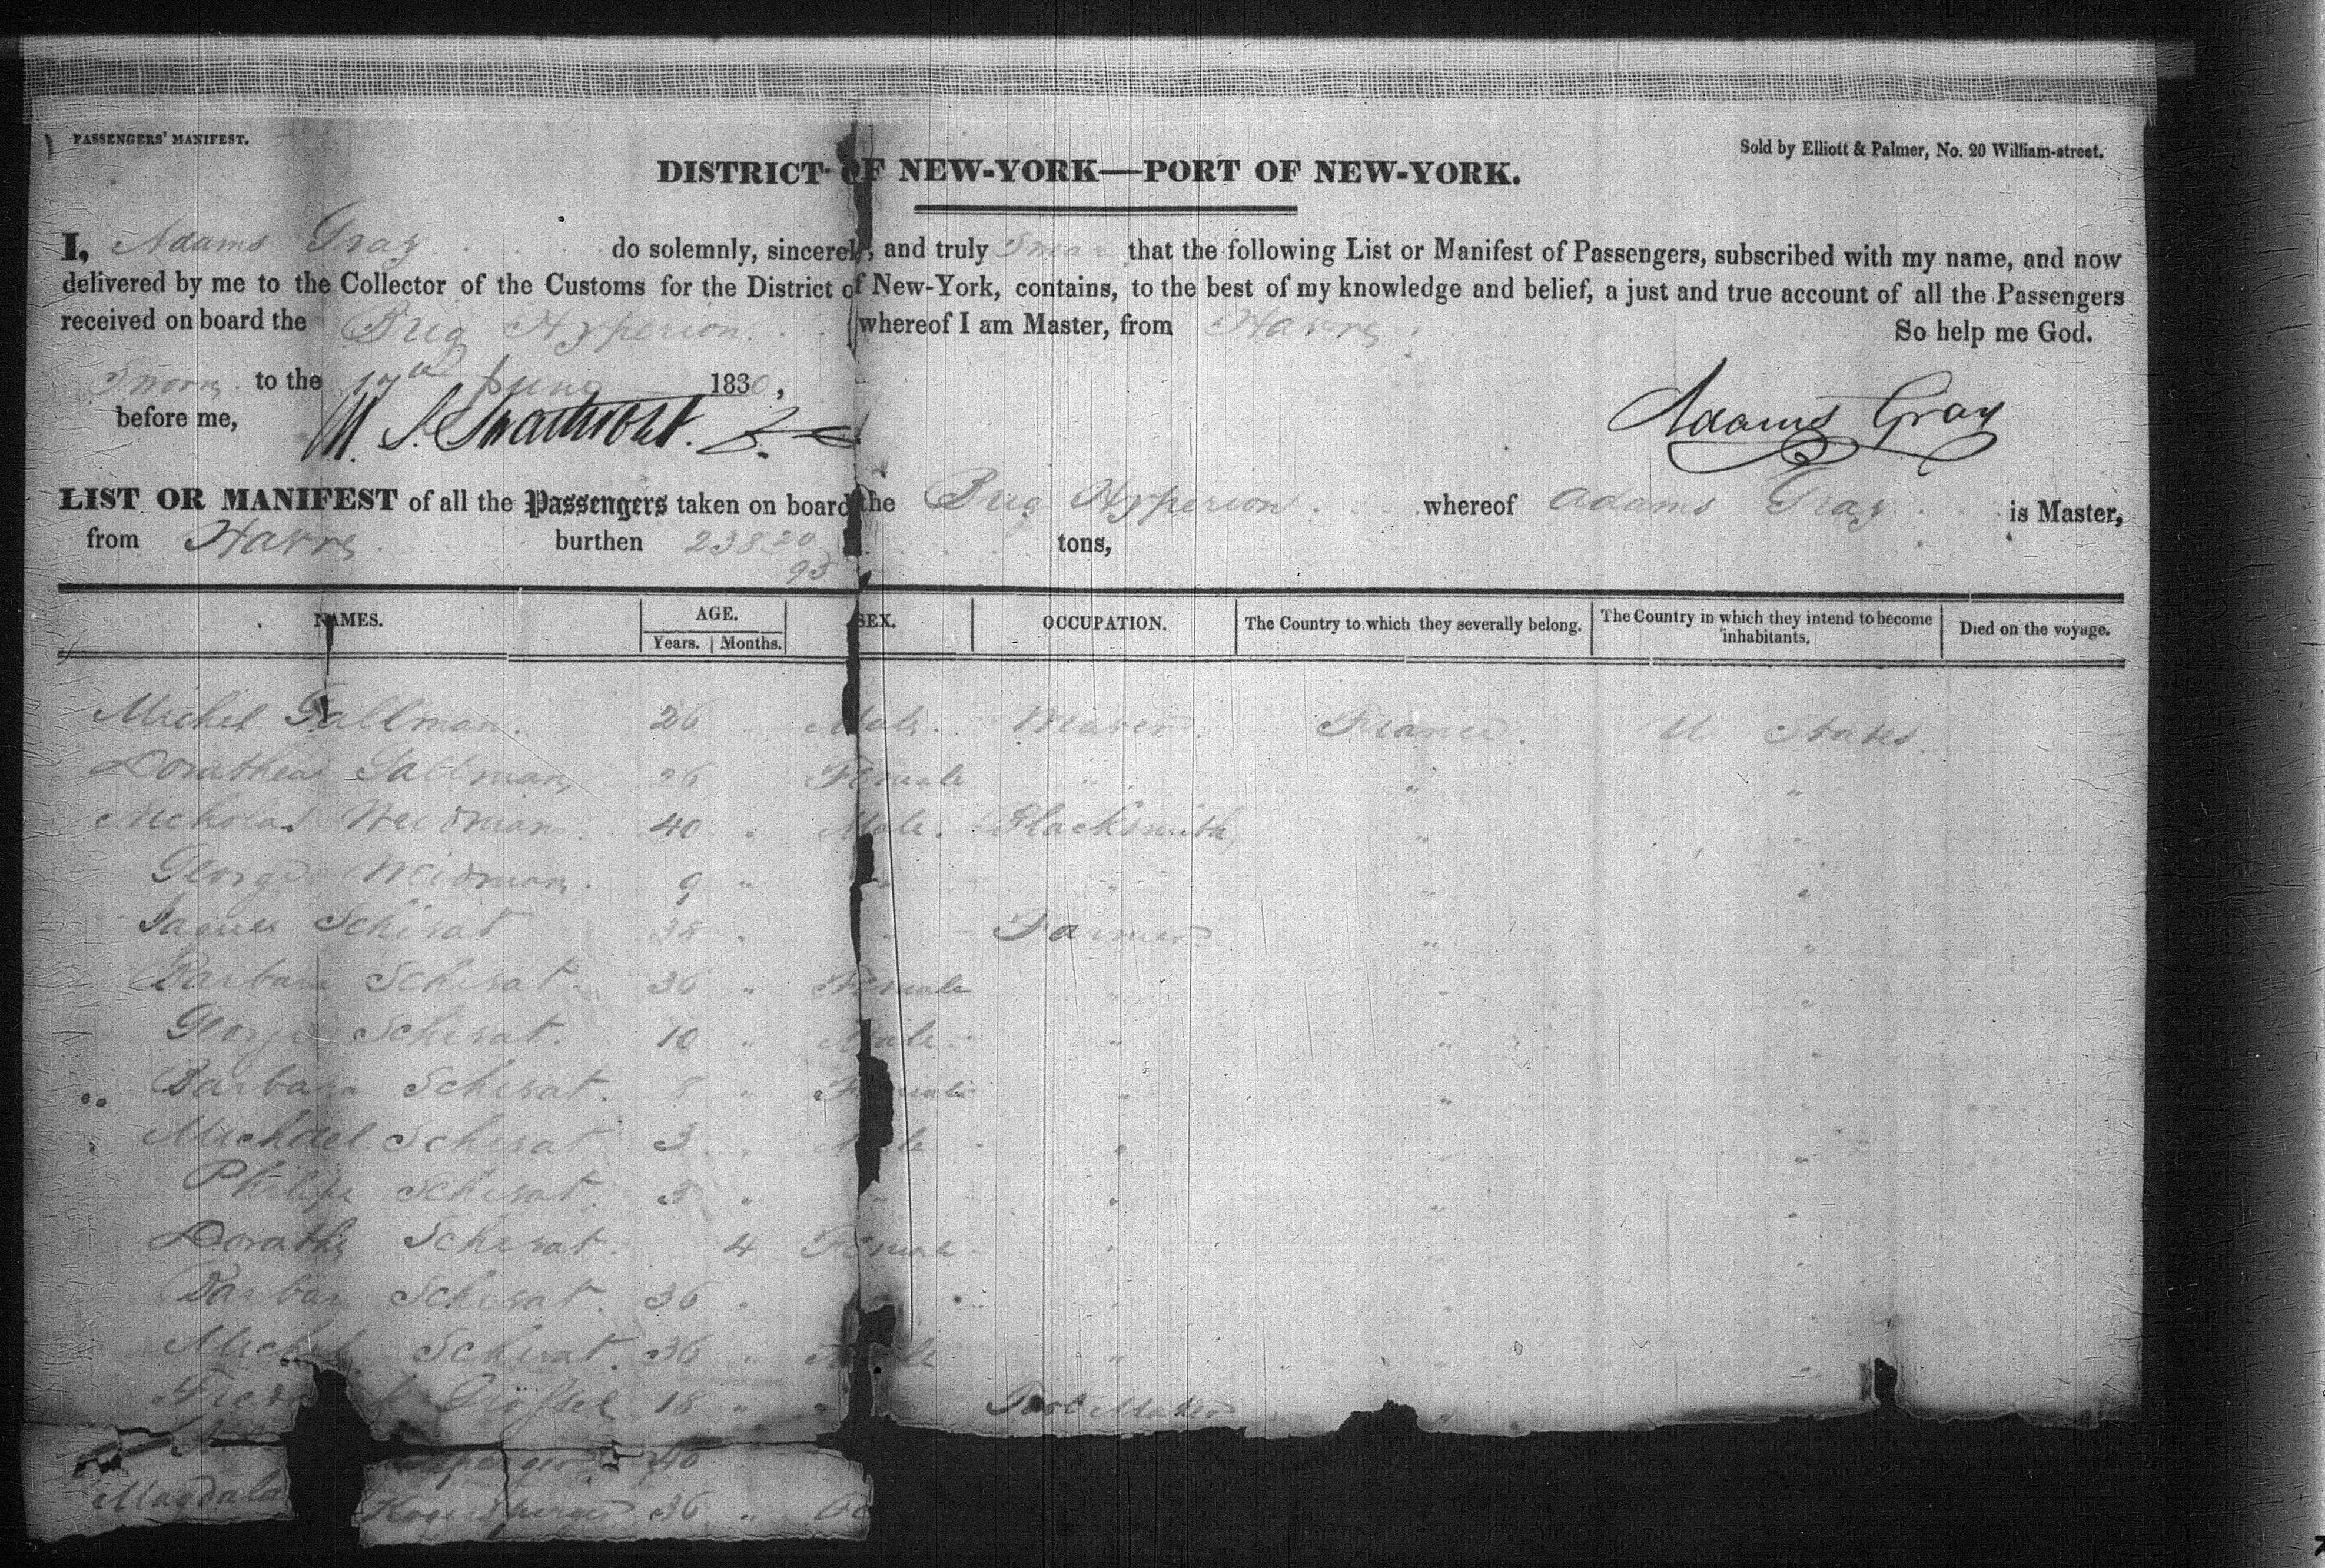 PASSENGERS' MANIFEST.
Sold by Elliott & Palmer, No. 20 William-street.
DISTRICT OF NEW-YORK—PORT OF NEW-YORK.
I, Adams Gray do solemnly, sincerely, and truly Swear that the following List or Manifest of Passengers, subscribed with my name, and now
delivered by me to the Collector of the Customs for the District of New-York, contains, to the best of my knowledge and belief, a just and true account of all the Passengers
received on board the Brig Hyperion whereof I am Master, from Havre So help me God.
Sworn to the 17th June 1830,
before me,
Adams Gray
LIST OR MANIFEST of all the Passengers taken on board the Brig Hyperion whereof Adams Gray is Master,
from Havre burthen 238 20/95 tons,
NAMES. AGE. SEX. OCCUPATION. The Country to which they severally belong. The Country in which they intend to become inhabitants. Died on the voyage.
Years. Months.
Michel Gallman. 26 Male. France. U. States.
Dorathea Gallman 26 Female " " "
Nicholas Weidman 40 " Male. Blacksmith, " "
George Weidman. 9 " " " " "
Jaques Schirat 38 " " Farmer " "
Barbara Schirat. 36 " Female " " "
George Schirat. 10 " Male " " "
Barbara Schirat. 8 " Female " " "
Michael Schirat 3 " Male " " "
Philipe Schirat. 3 " " " " "
Dorathe Schirat. 4 Female " " "
Barbara Schirat. 36 " " " "
Michel Schirat. 36 " Male " " "
18 " " Tool Maker "
40
Magdala 36 "